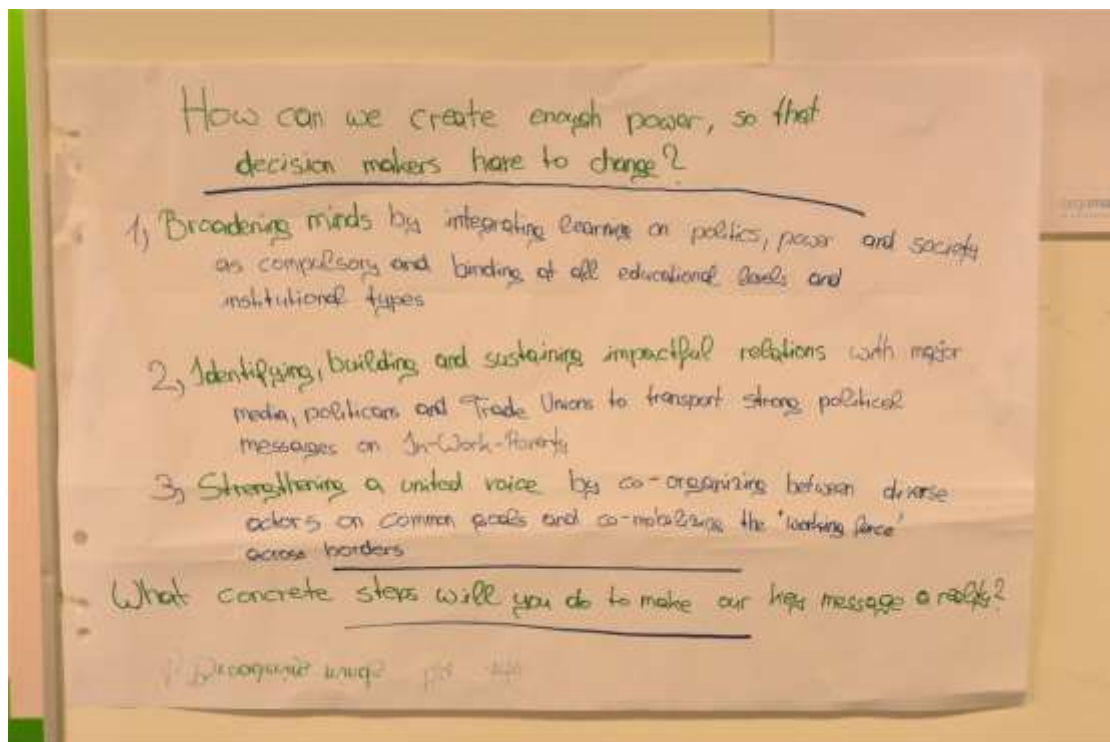 How can we create enough power, so that
decision makers have to change?
1, Broadening minds by integrating learning on politics, power and society
as compulsory and binding at all educational levels and
institutional types
2, Identifying, building and sustaining impactful relations with major
media, politicans and Trade Unions to transport strong political
messages on In-Work-Poverty
3, Strengthening a united voice by co-organizing between diverse
actors on common goals and co-mobilizing the 'working force'
across borders
What concrete steps will you do to make our key message a reality?